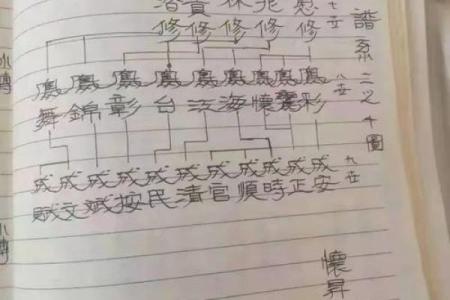 譜系二之十圖
貴林兆慰七世
修修修修修
鳳鳳鳳鳳鳳鳳鳳鳳鳳八世
舞錦彰台法海懷襄彩
成成成成成成成成成成成九世
賦文斌按民清官順時正安
懷昇